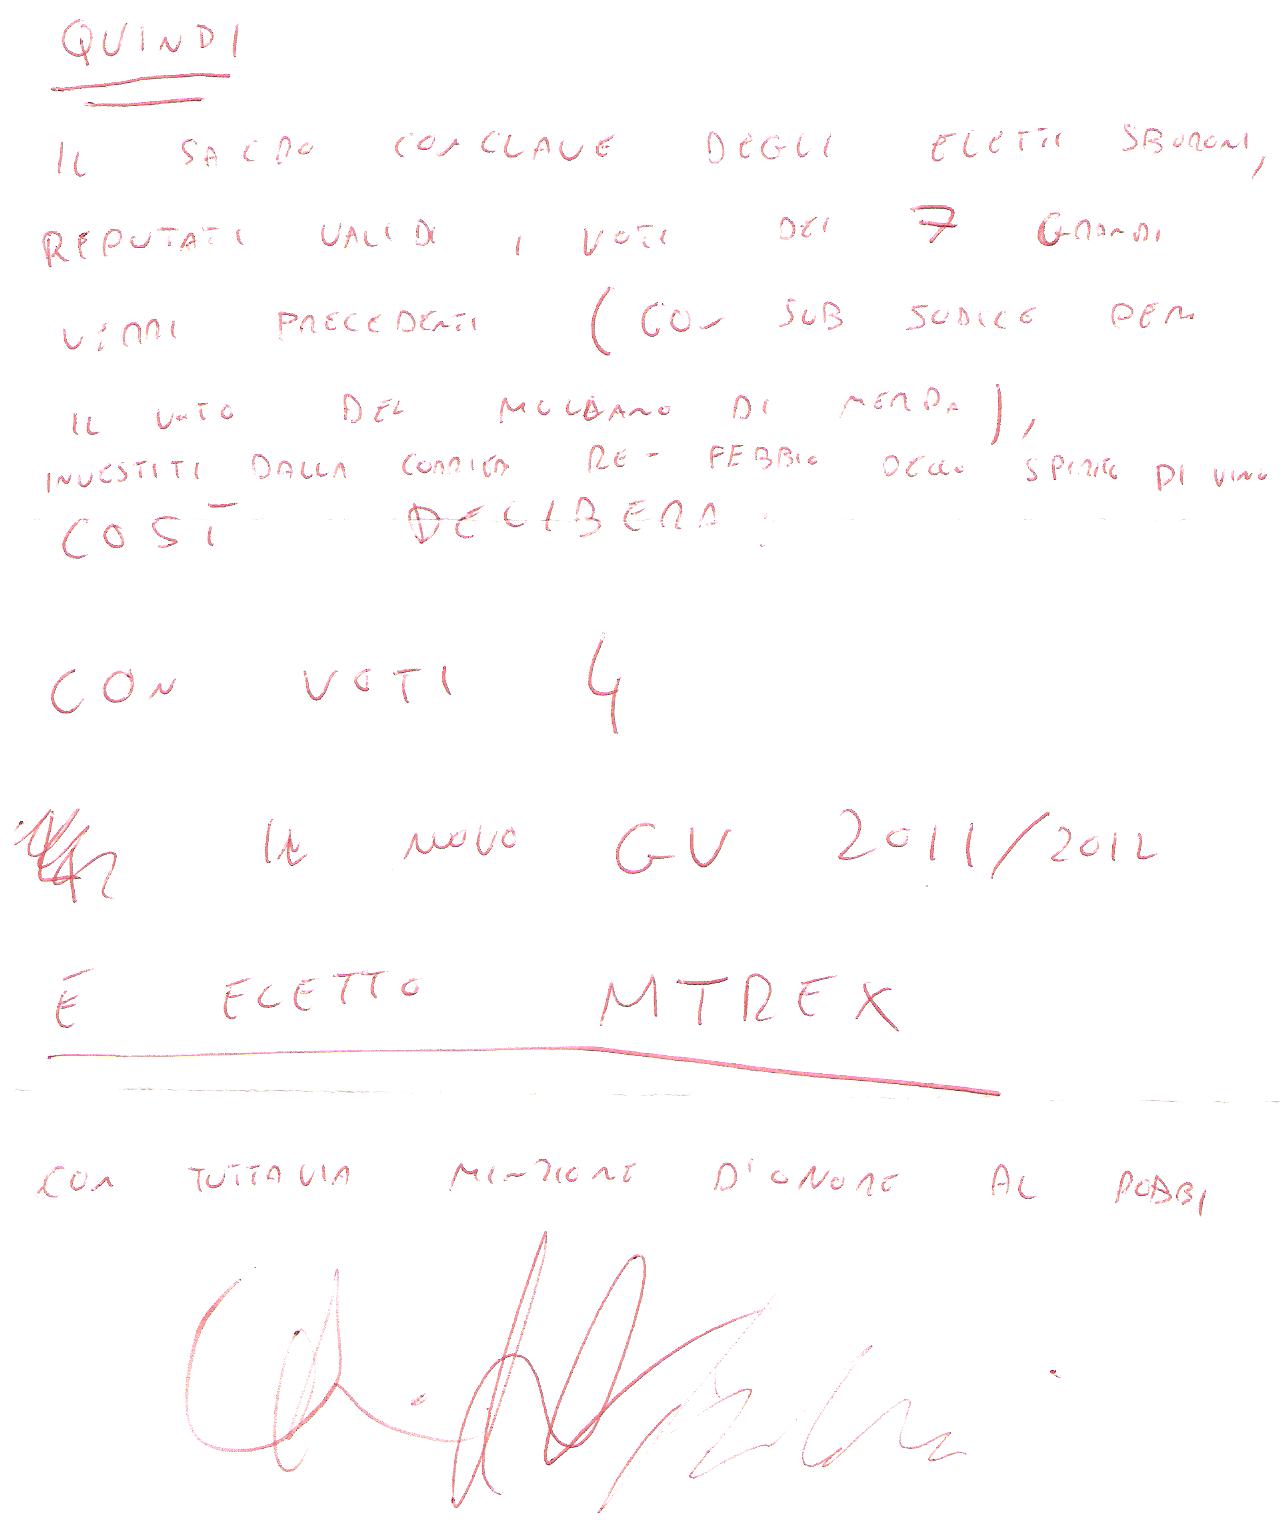 QUINDI
IL SACRO CONCLAVE DEGLI ELETTI SBORONI,
REPUTATI VALIDI I VOTI DEI 7 GRANDI
VERRI PRECEDENTI (CON SUB SUDICE PER
IL VOTO DEL MULBANO DI MERDA),
INVESTITI DALLA RE-FEBBIO DELLO SPIRITO DI VINO
COSÌ DELIBERA:
CON VOTI 4
IL NOVO GV 2011/2012
È ELETTO MTREX
CON TUTTAVIA MENZIONE D'ONORE AL POBBI